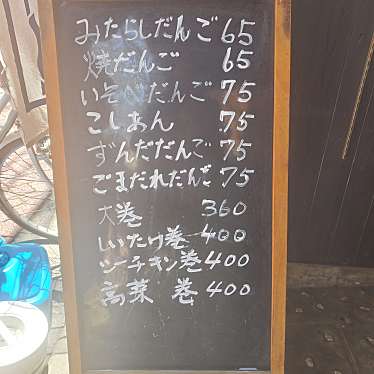 みたらしだんご 65
焼だんご 65
いそべだんご 75
こしあん 75
ずんだだんご 75
ごまだれだんご 75
大巻 360
しいたけ巻 400
シーチキン巻 400
高菜 巻 400